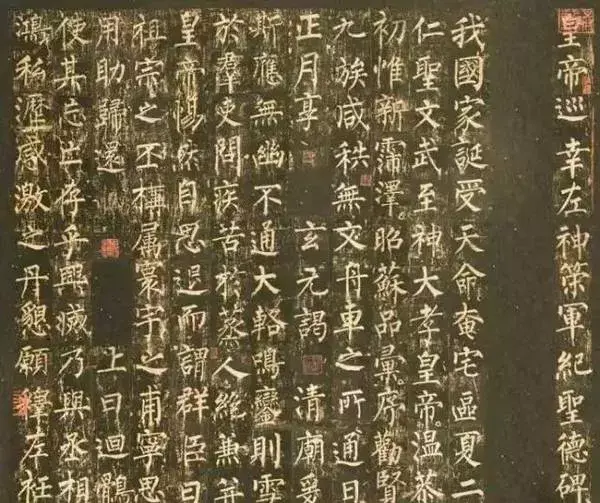 皇帝巡幸左神策軍紀聖德碑
我國家誕受天命奄宅區夏二
仁聖文武至神大孝皇帝温恭
初惟新霈澤昭蘇品彙序勸賢
九族咸秩無文舟車之所通日
正月享 玄元謁 清廟爰
斯應無幽不通大輅鳴鑾則雪
於羣吏問疾苦於蒸人絶兼并
皇帝惕然自思退而謂群臣曰
祖宗之丕構属寰宇之甫寧思
用助歸還 上曰迴鶻
使其忘亡存乎興滅乃與丞相
鴻私瀝感激之丹懇願釋左衽